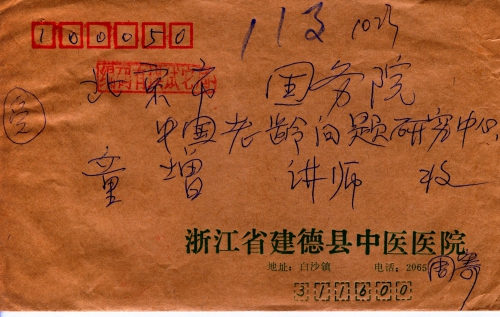 100050
113 10/5
北京市 国务院
中国老龄问题研究中心
童增 讲师 收
浙江省建德县中医医院
地址：白沙镇 电话：2065
311600